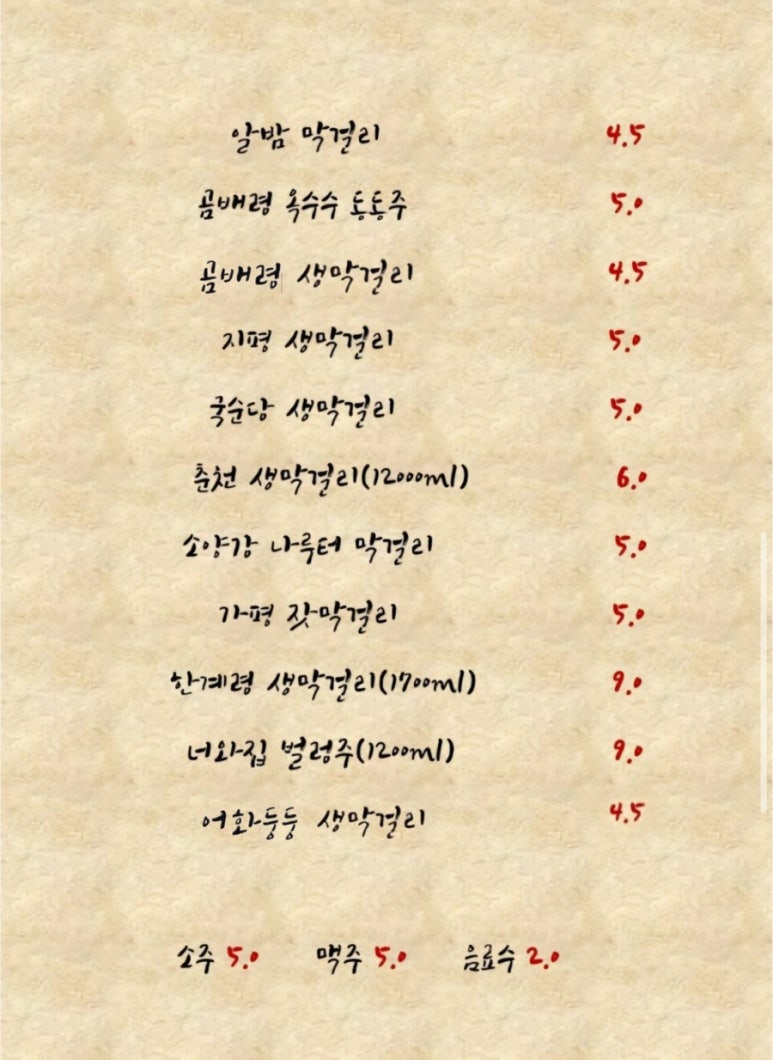 알밤 막걸리 4.5
곰배령 옥수수 동동주 5.0
곰배령 생막걸리 4.5
지평 생막걸리 5.0
국순당 생막걸리 5.0
춘천 생막걸리(12000ml) 6.0
소양강 나루터 막걸리 5.0
가평 잣막걸리 5.0
한계령 생막걸리(1700ml) 9.0
너와집 벌떵주(1200ml) 9.0
어화둥둥 생막걸리 4.5
소주 5.0 맥주 5.0 음료수 2.0